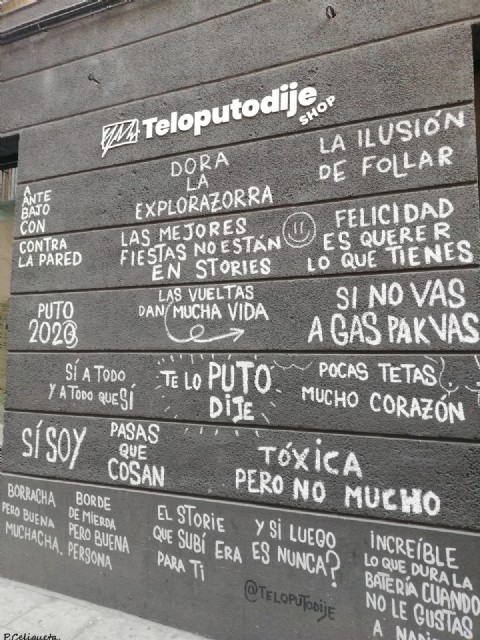 Teloputodije
SHOP
DORA
LA
EXPLORAZORRA
LA ILUSIÓN
DE FOLLAR
A
ANTE
BAJO
CON
CONTRA
LA PARED
LAS MEJORES
FIESTAS NO ESTÁN
EN STORIES
FELICIDAD
ES QUERER
LO QUE TIENES
PUTO
2020
LAS VUELTAS
DAN MUCHA VIDA
SI NO VAS
A GAS PAKVAS
SÍ A TODO
Y A TODO QUE SÍ
TE LO PUTO
DIJE
POCAS TETAS
MUCHO CORAZÓN
SÍ SOY
PASAS
QUE
COSAN
TÓXICA
PERO NO MUCHO
BORRACHA
PERO BUENA
MUCHACHA.
BORDE
DE MIERDA
PERO BUENA
PERSONA
EL STORIE
QUE SUBÍ ERA
PARA TI
Y SI LUEGO
ES NUNCA?
INCREÍBLE
LO QUE DURA LA
BATERÍA CUANDO
NO LE GUSTAS
A
@TELOPUTODIJE
P.Celigueta.